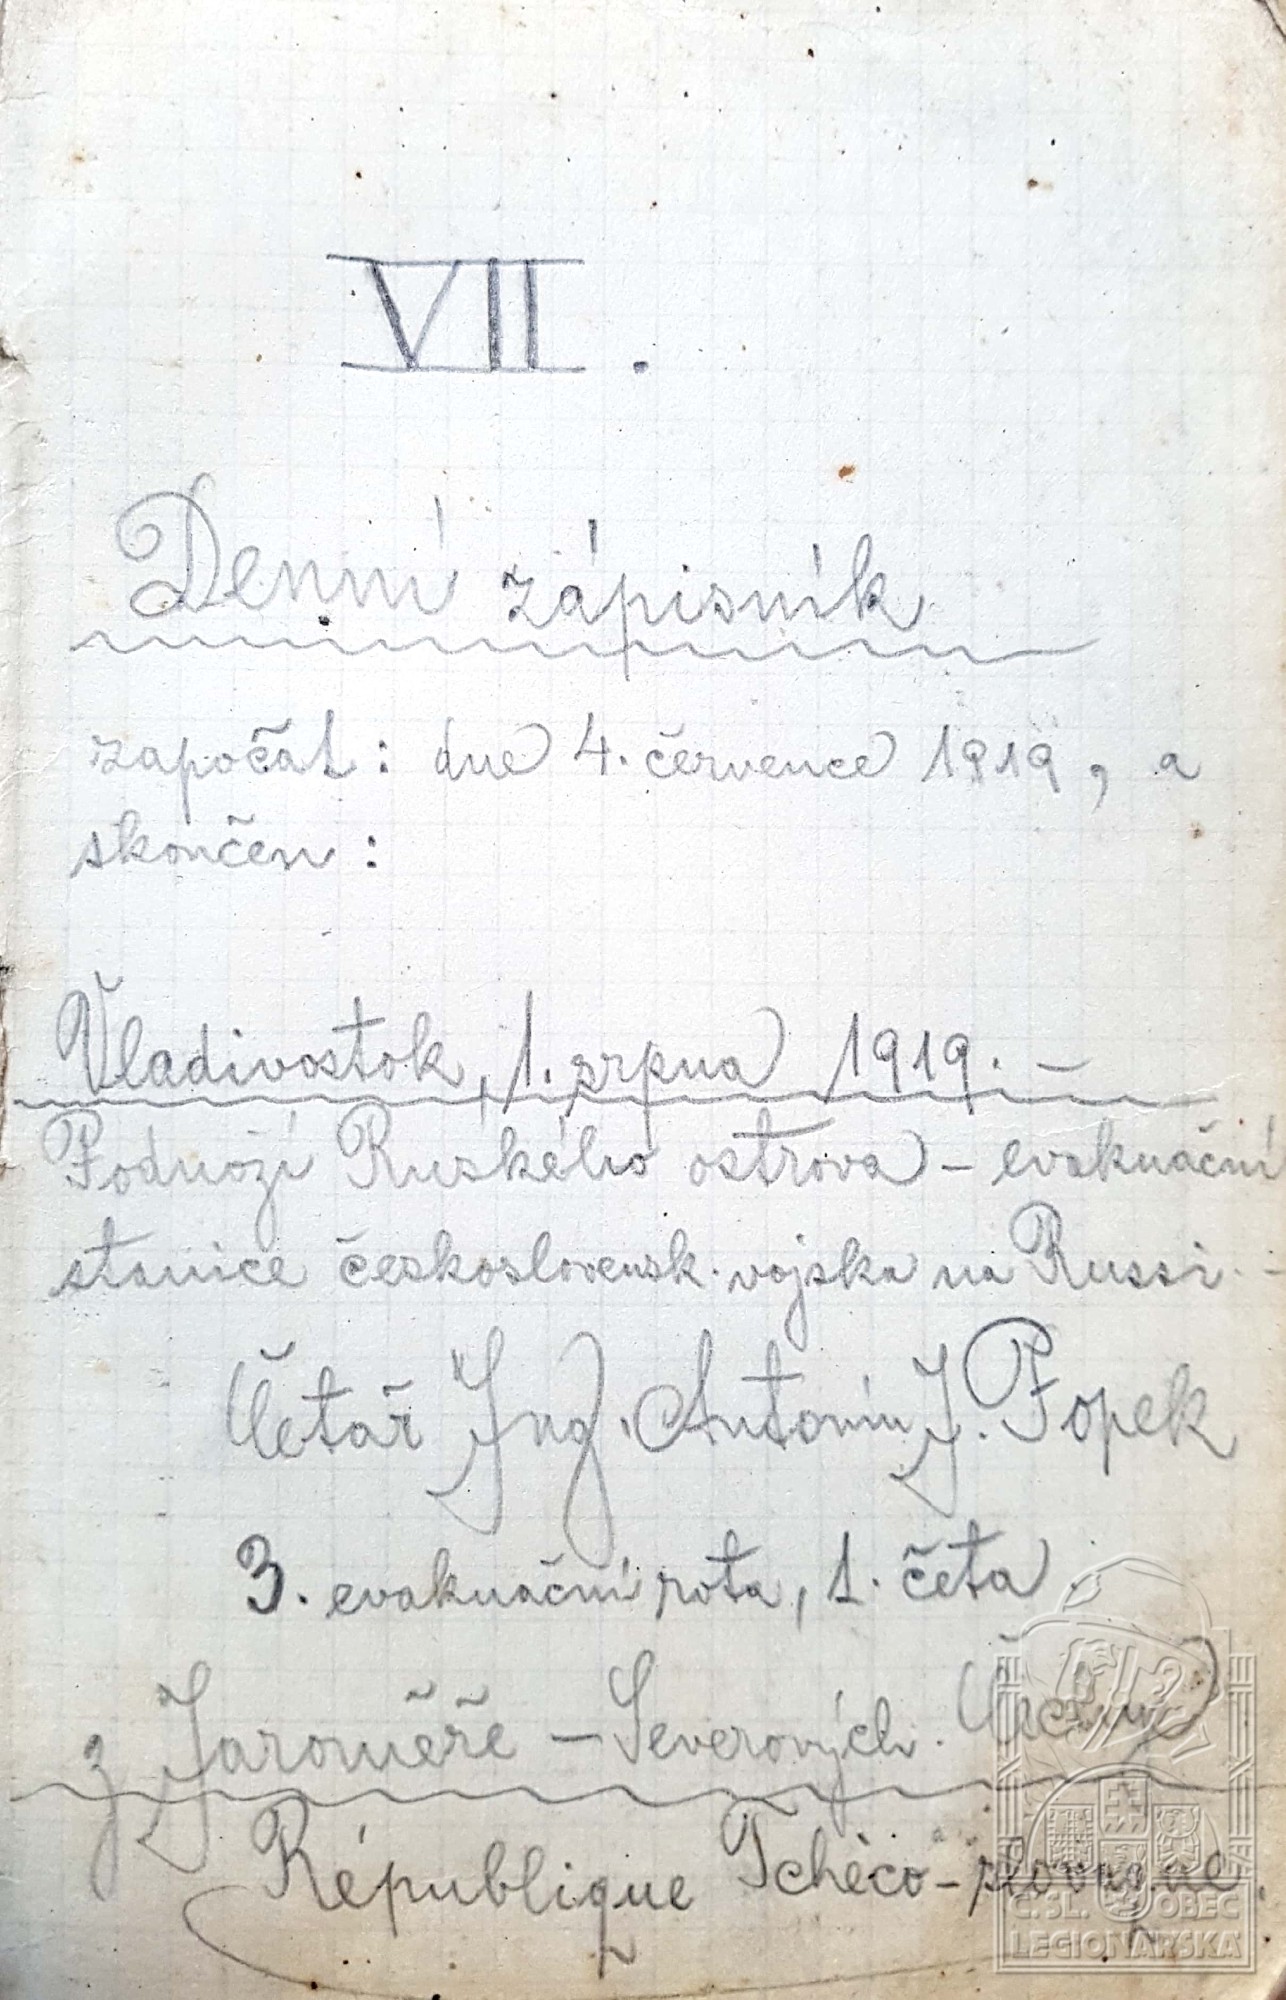 VII.
Denní zápisník
započat: dne 4. července 1919, a
skončen:
Vladivostok, 1. srpna 1919. –
Podnoží Ruského ostrova – evakuační
stanice československ. vojska na Russi. –
Četař Ing. Antonín J. Popek
3. evakuační rota, 1. četa
z Jaroměře – Severových. Čechy
République Tchéco-slovaque.
Č. SL. OBEC
LEGIONÁŘSKÁ